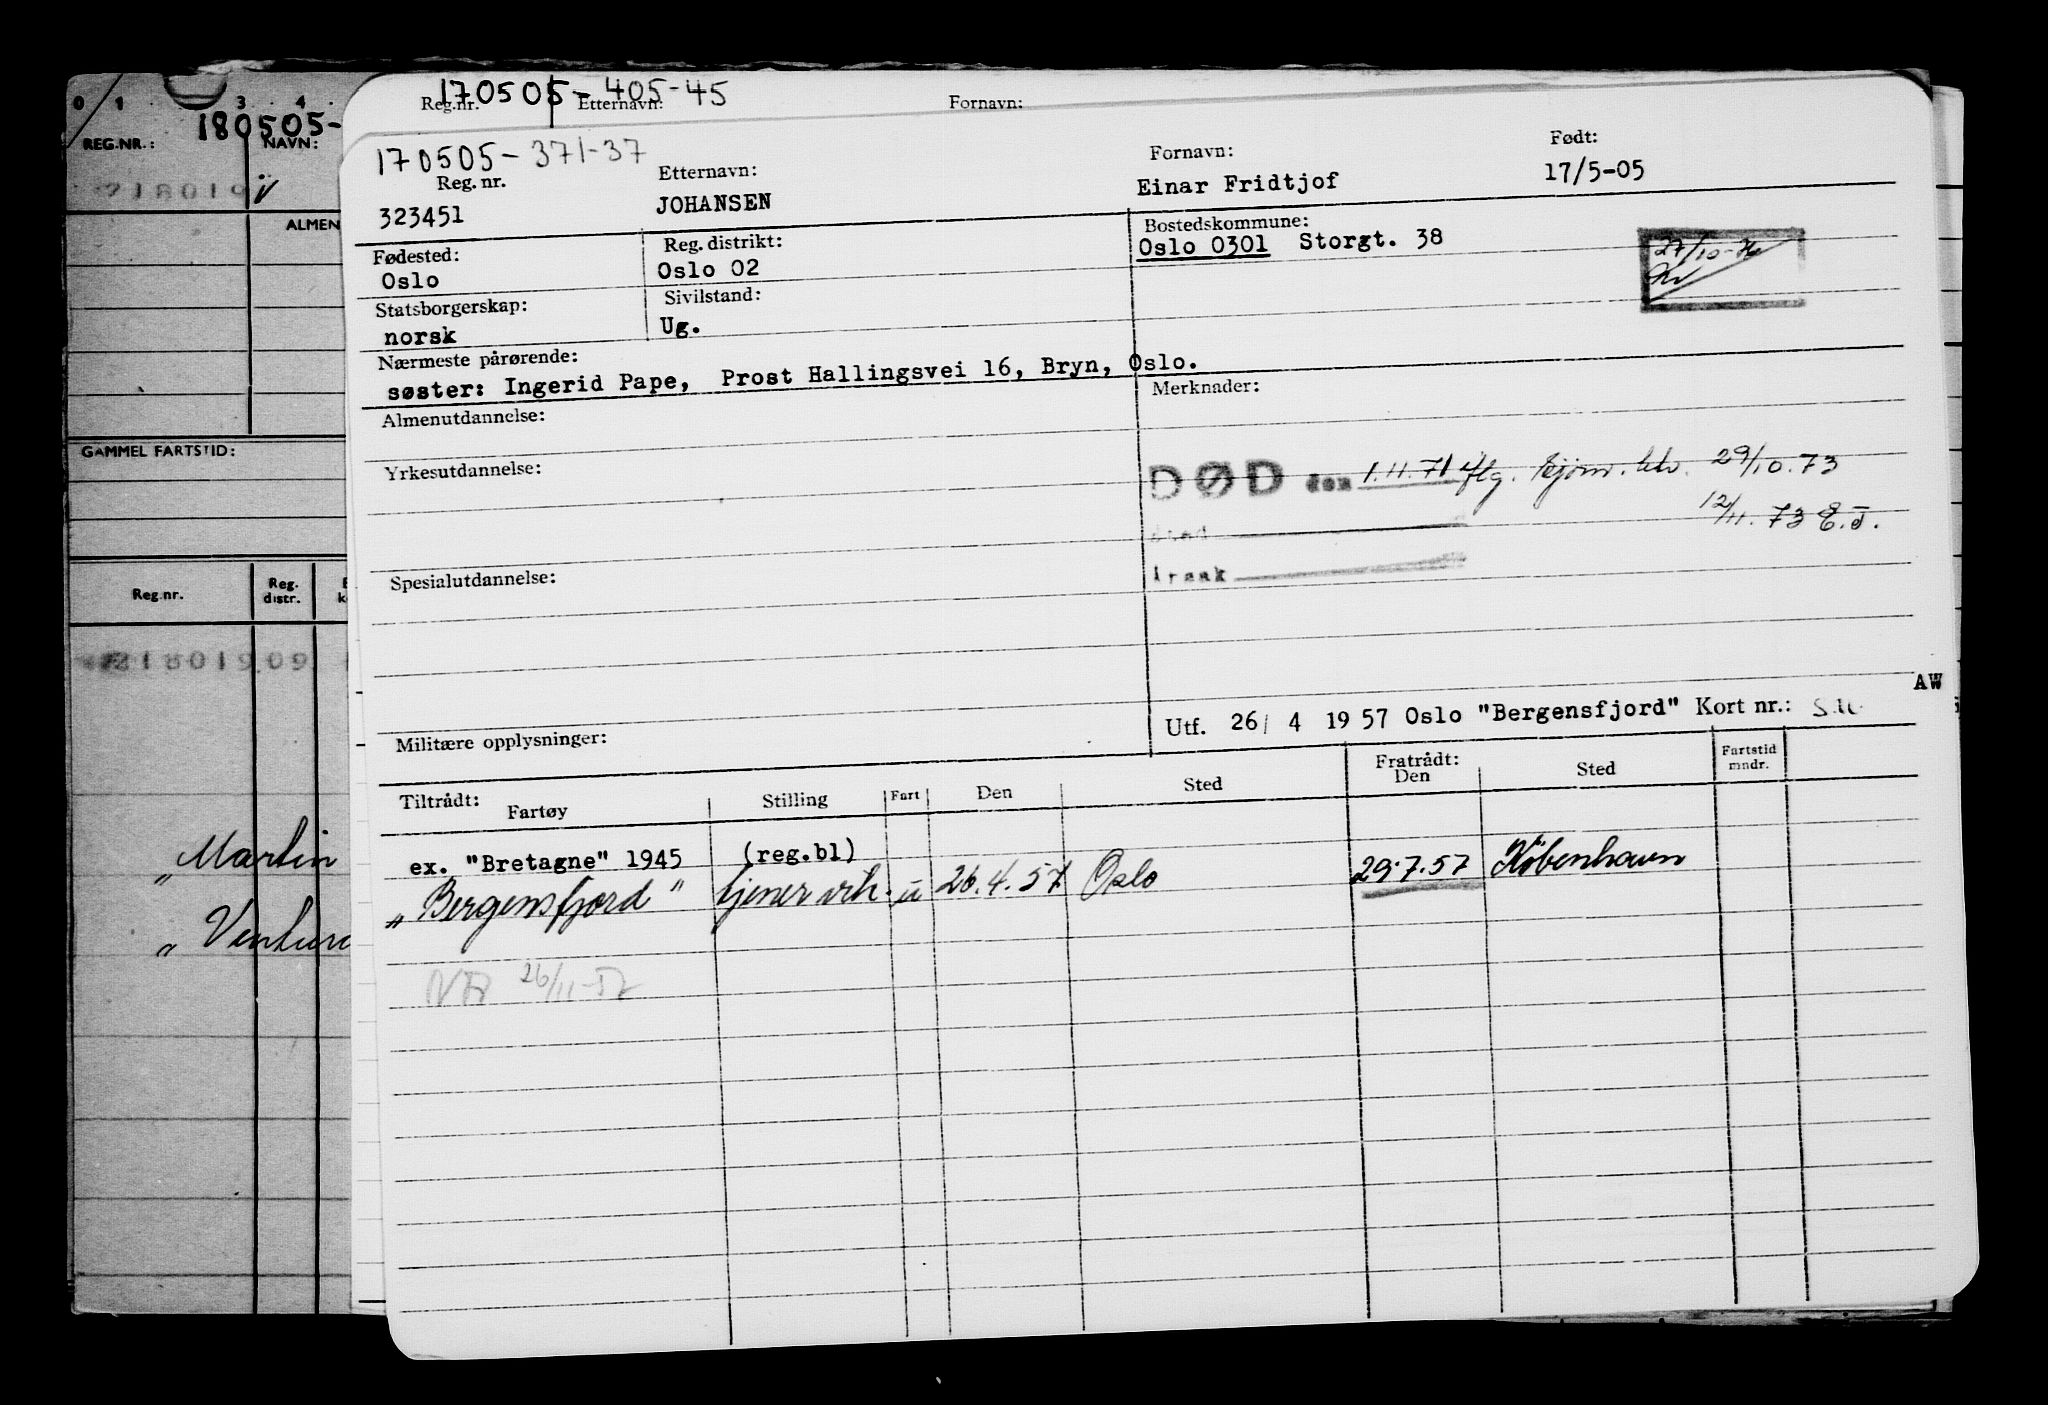 170505-405-45
Reg.nr. Etternavn: Fornavn:
0 1 3 4
180505-
REG.NR.: NAVN:
218019
ALMEN
GAMMEL FARTSTID:
Reg.nr. Reg. distr.
218019 09
„Martin
„Ventura
170505-371-37
Reg. nr. Etternavn: Fornavn: Født:
323451 JOHANSEN Einar Fridtjof 17/5-05
Fødested: Reg. distrikt: Bostedskommune:
Oslo Oslo 02 Oslo 0301 Storgt. 38
27/10-76
Statsborgerskap: Sivilstand:
norsk Ug.
Nærmeste pårørende:
søster: Ingerid Pape, Prost Hallingsvei 16, Bryn, Oslo.
Almenutdannelse: Merknader:
Yrkesutdannelse:
DØD den 1.11.71 iflg. 29/10.73
sted 12/11.73 E.J.
årsak
Spesialutdannelse:
AW
Militære opplysninger: Utf. 26/ 4 1957 Oslo "Bergensfjord" Kort nr.:
Tiltrådt: Fartøy Stilling Fart Den Sted Fratrådt: Den Sted Fartstid mndr.
ex. "Bretagne" 1945 (reg.bl)
„Bergensfjord" tjener vik. u 26.4.57 Oslo 29.7.57 København
NR 26/11-57